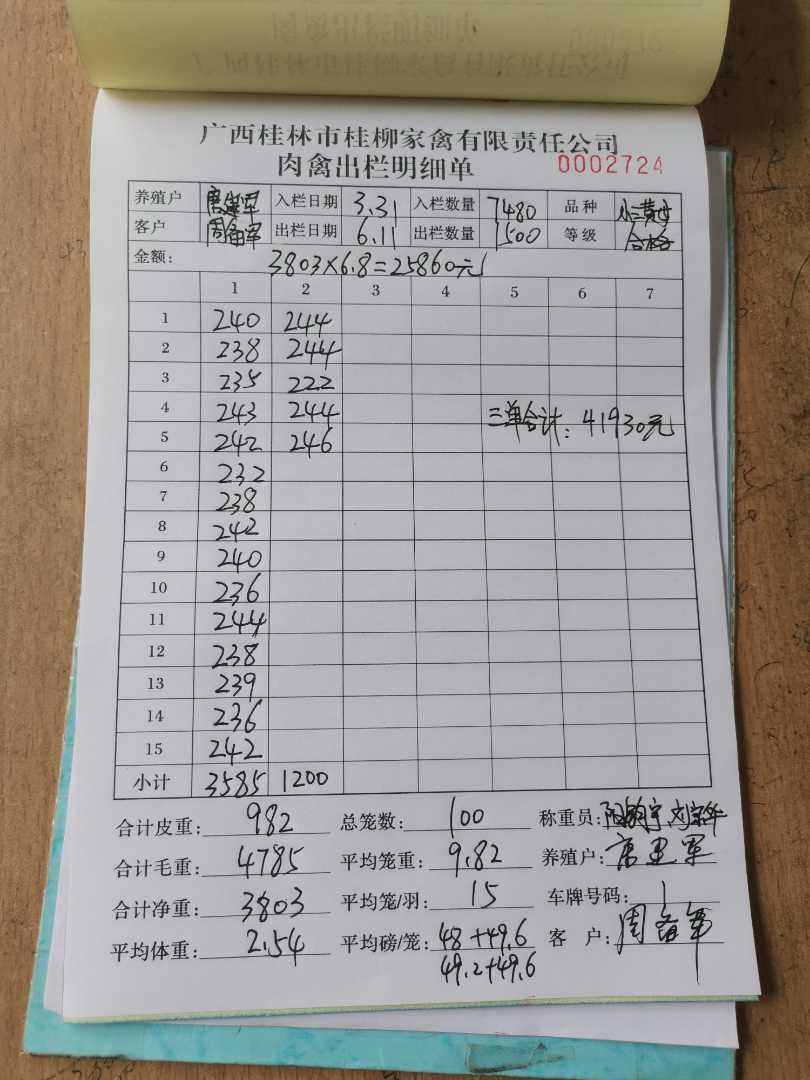 广西桂林市桂柳家禽有限责任公司
肉禽出栏明细单 0002724
养殖户 唐建军 入栏日期 3.31 入栏数量 7480 品种
客户 周军 出栏日期 6.11 出栏数量 1500 等级 合格
金额: 3803×6.8=25860元
1 2 3 4 5 6 7
1 240 244
2 238 244
3 235 222
4 243 244 三单合计:41930元
5 242 246
6 232
7 238
8 242
9 240
10 236
11 244
12 238
13 239
14 236
15 242
小计 3585 1200
合计皮重: 982 总笼数: 100 称重员:
合计毛重: 4785 平均笼重: 9.82 养殖户: 唐建军
合计净重: 3803 平均笼/羽: 15 车牌号码: 1
平均体重: 2.54 平均磅/笼: 48+49.6 客 户: 周军
49.2+49.6